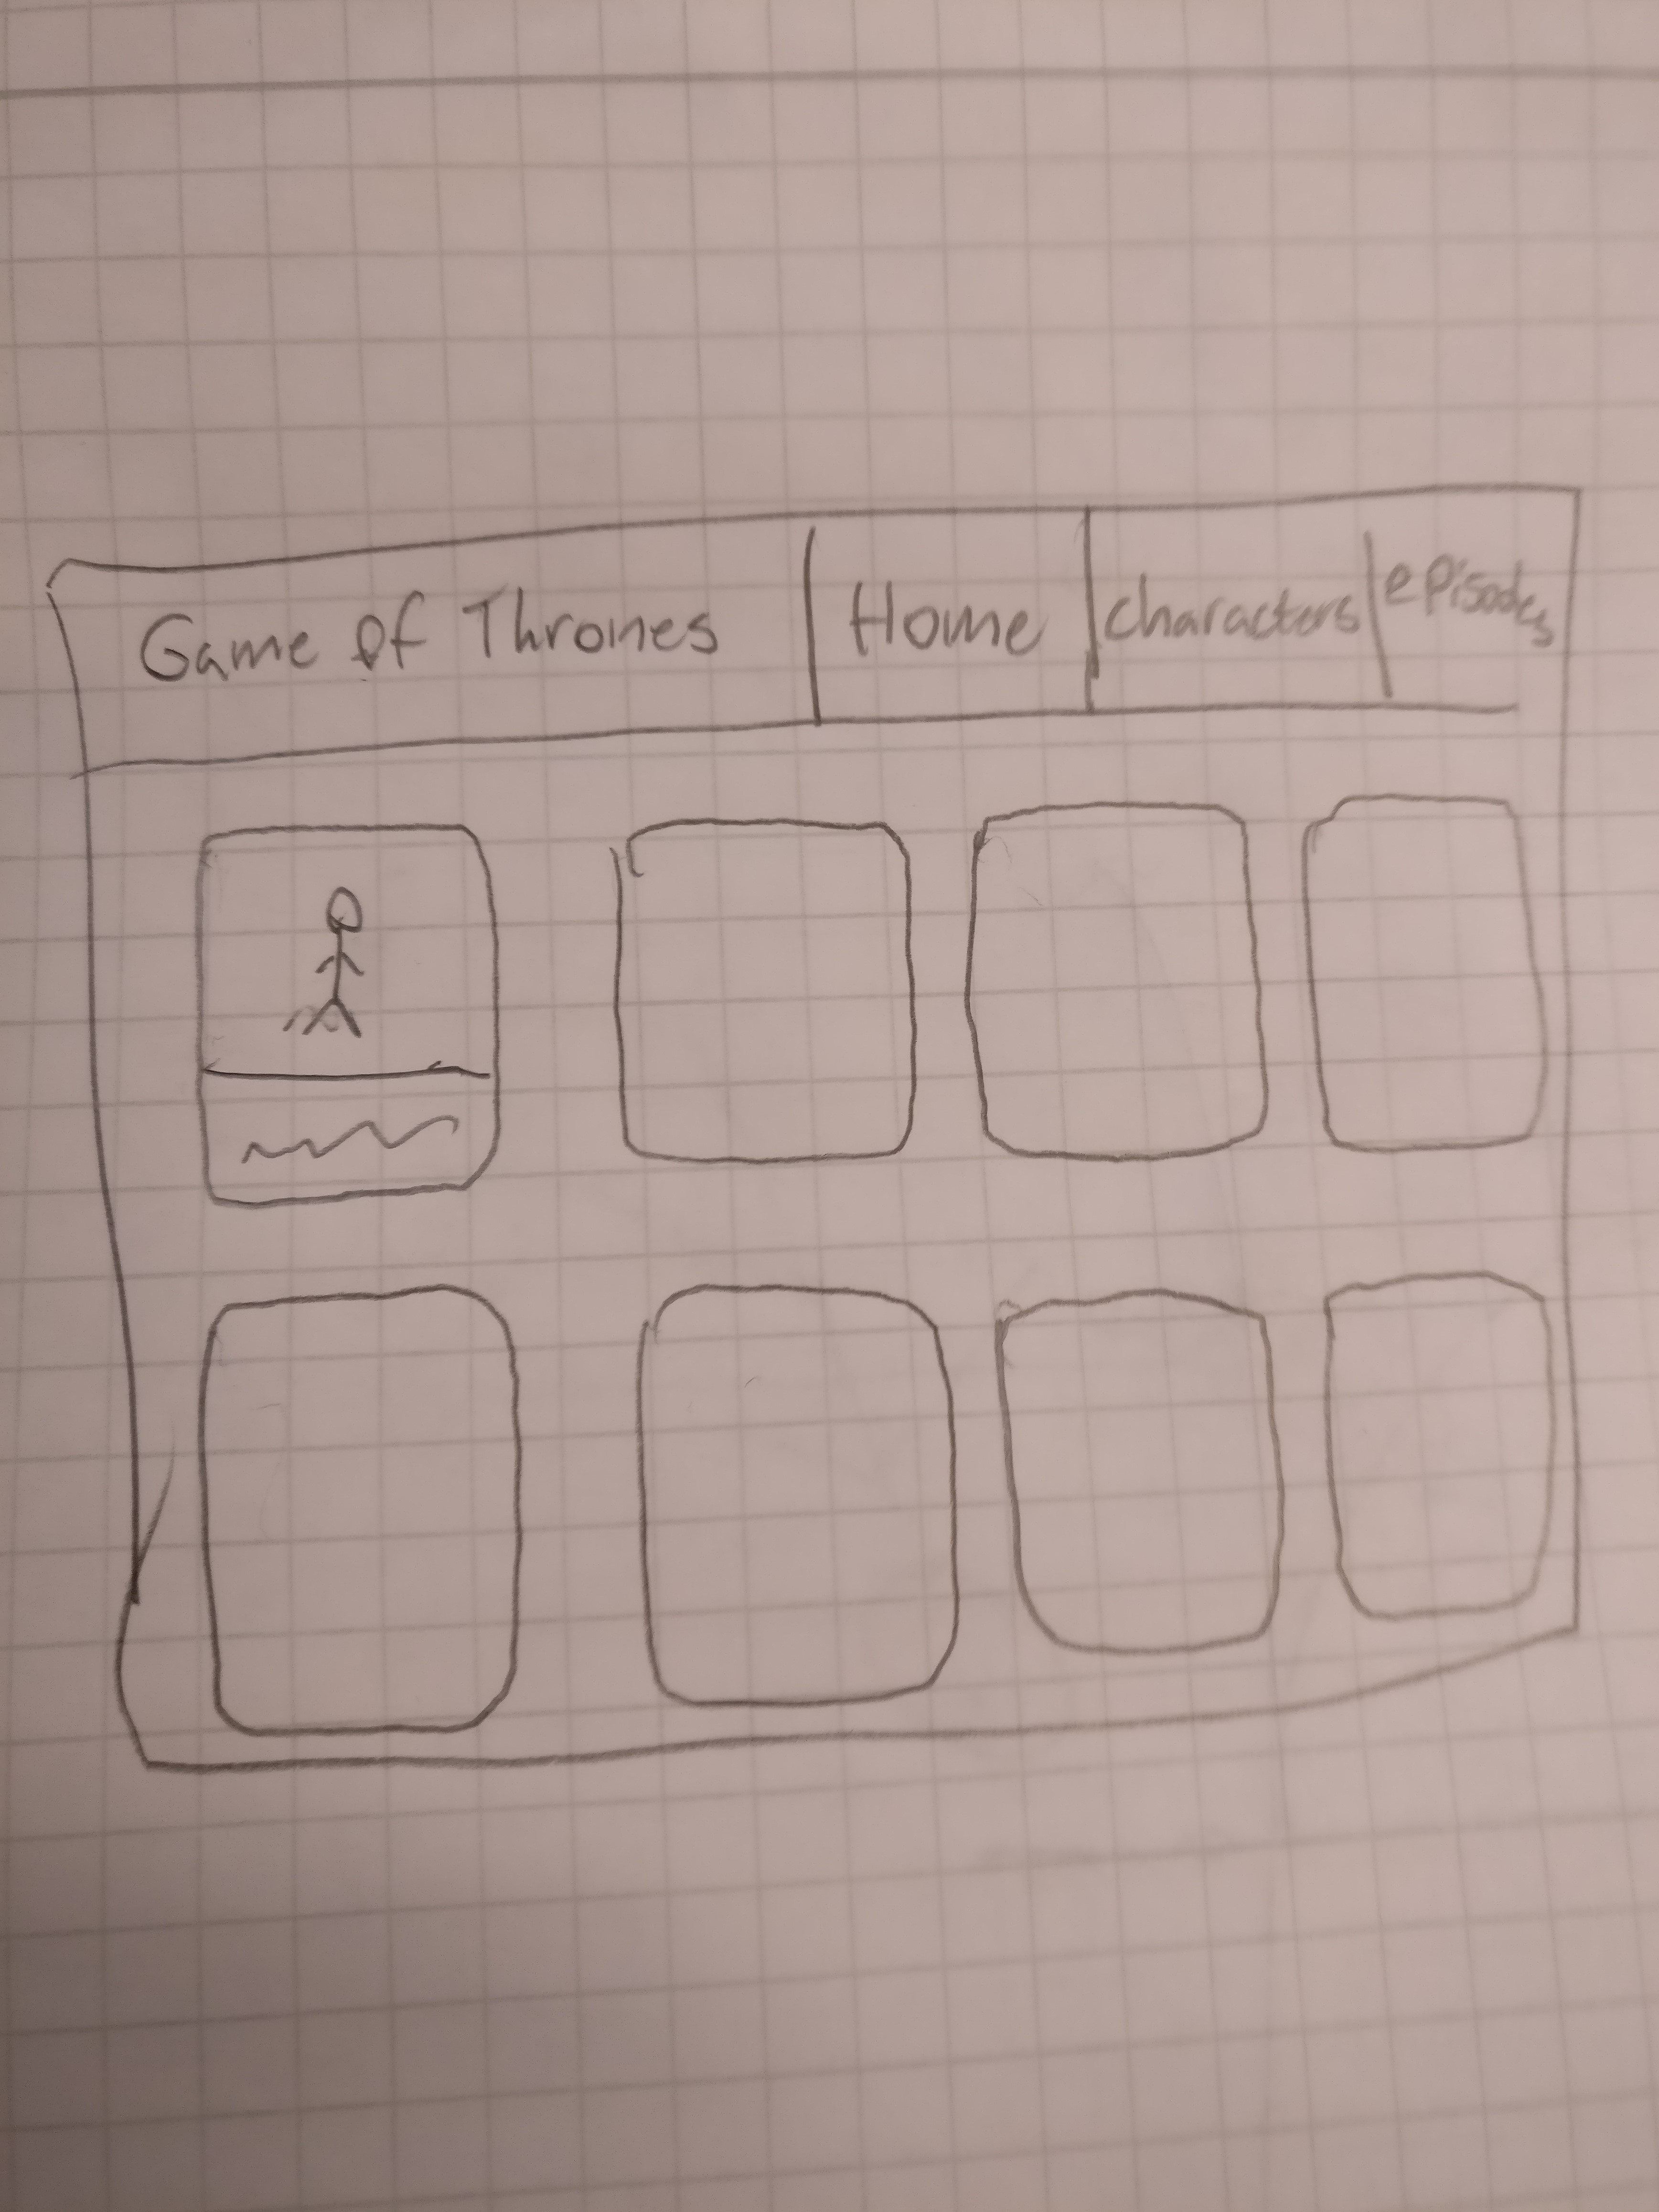 Game of Thrones Home characters episodes